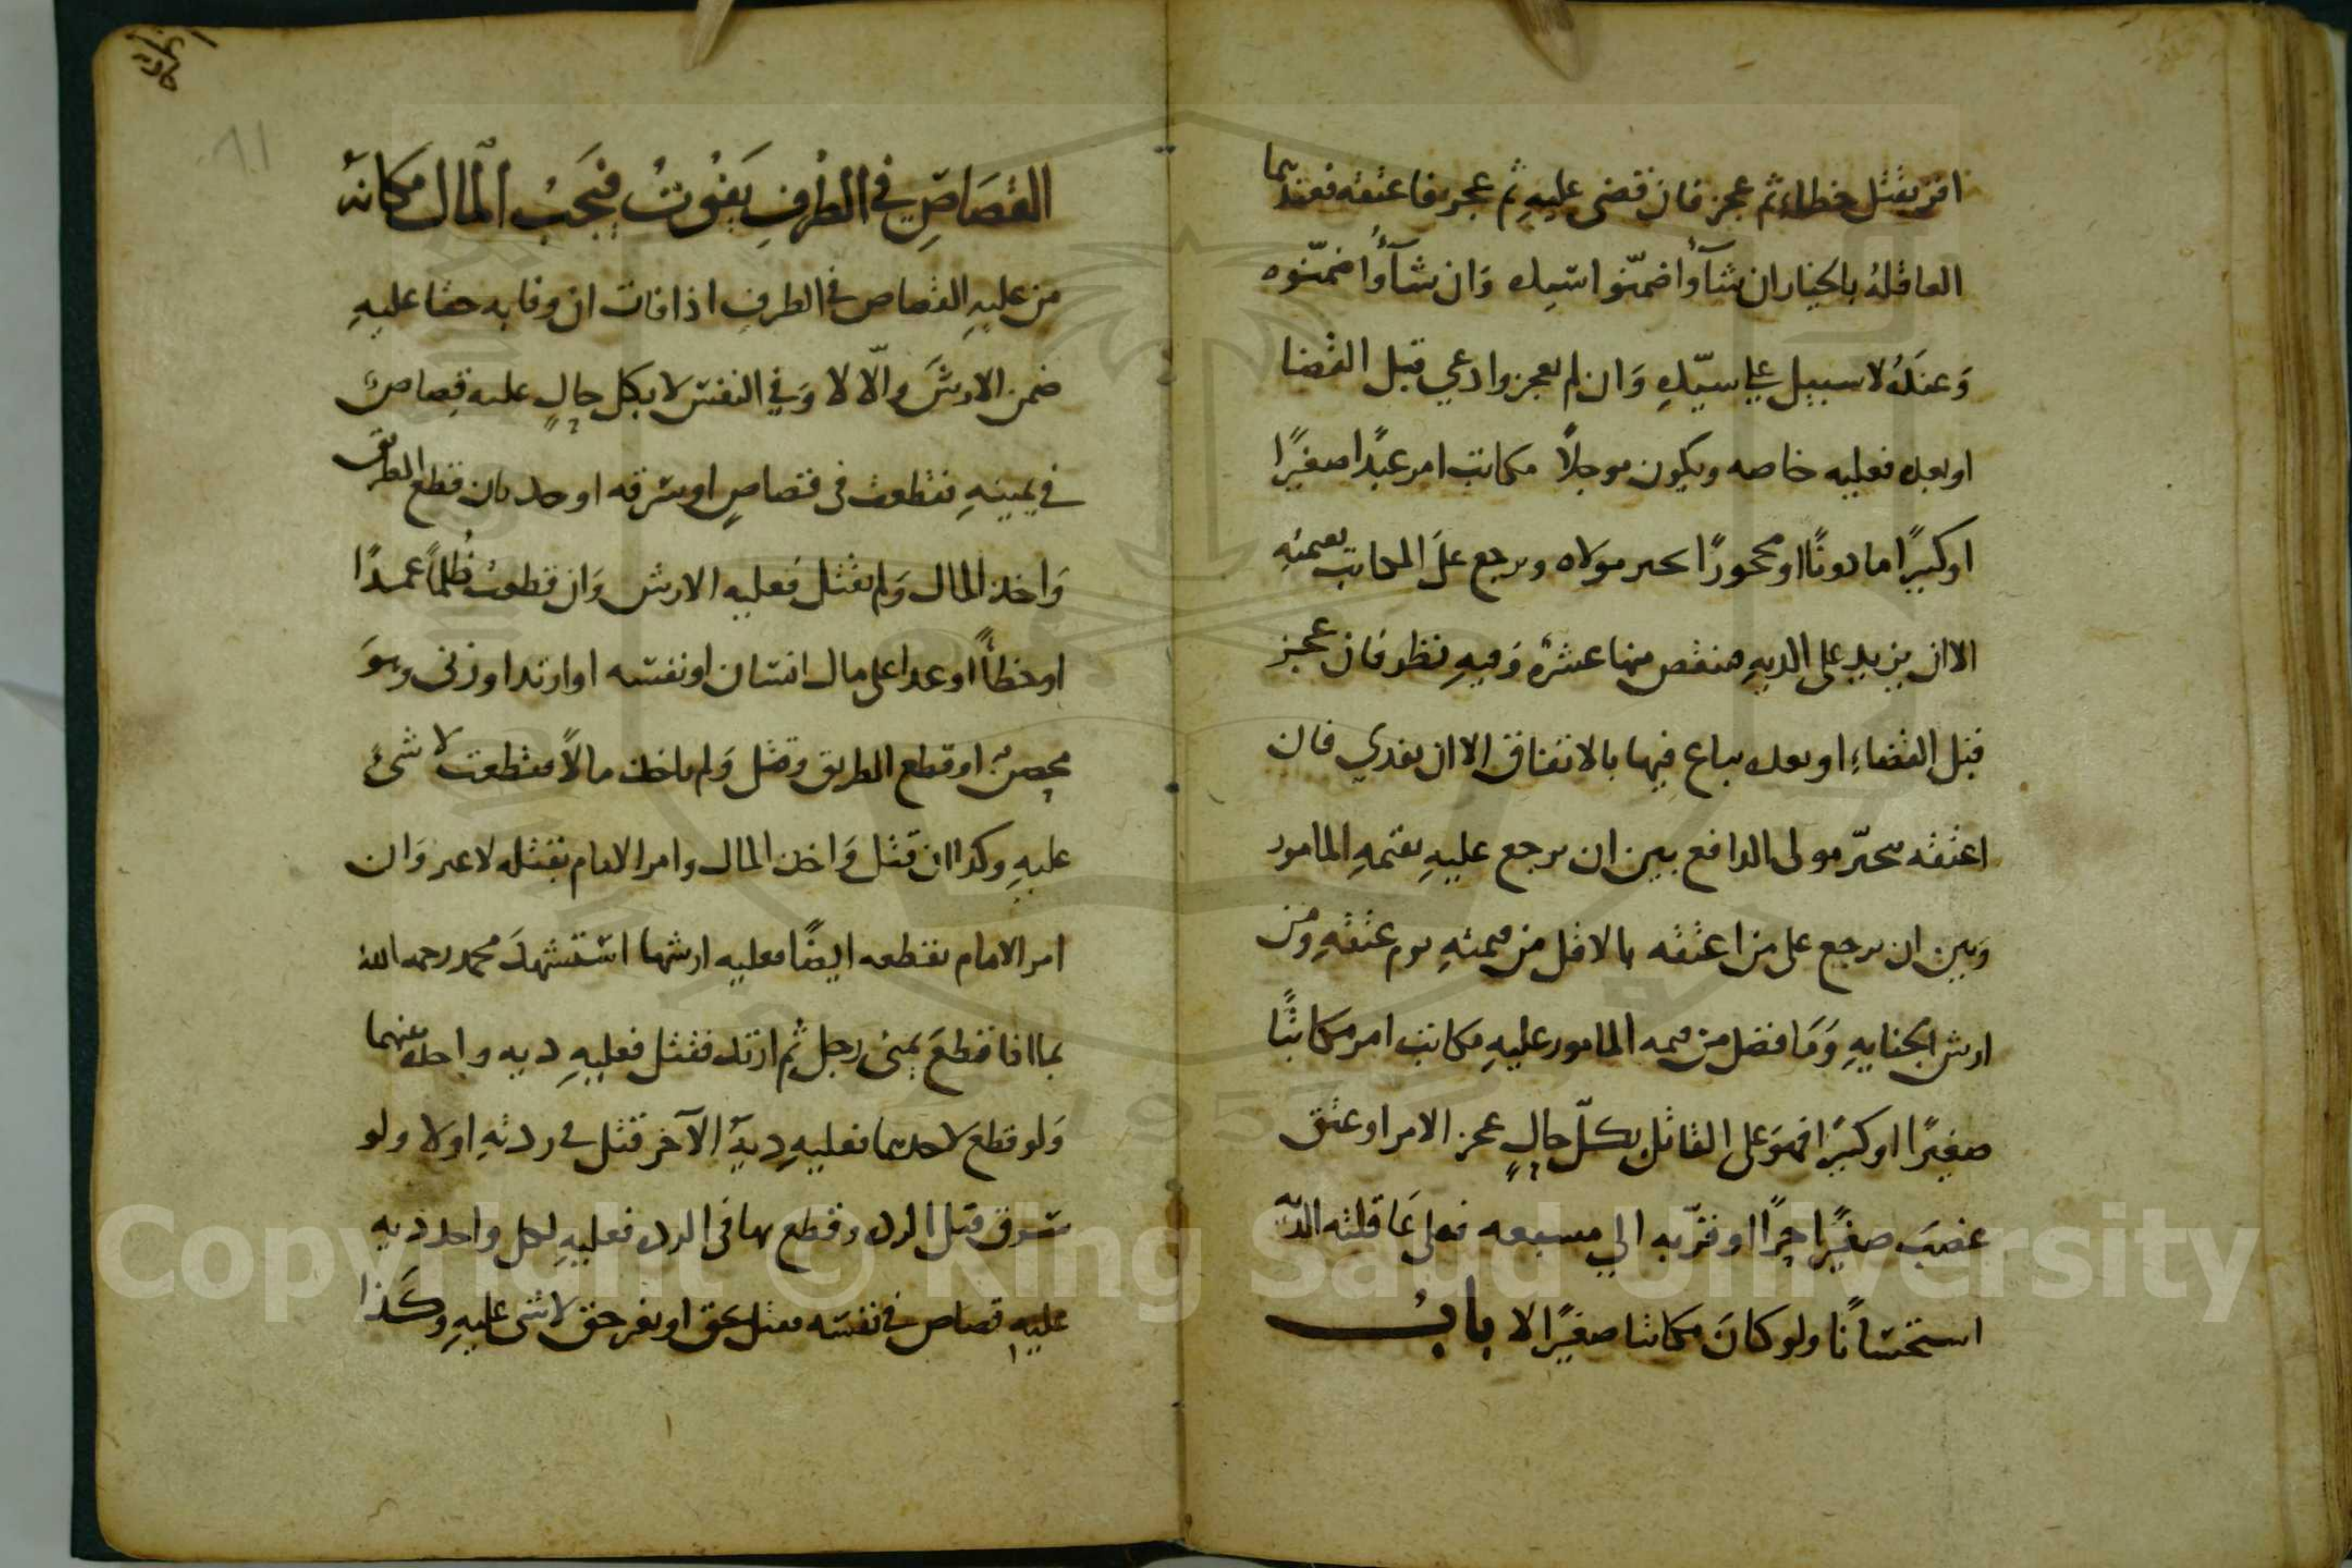 اقر بقتل خطاء ثم عجز فان قضى عليه ثم عجز فاعتقه فعندهما
العاقلة بالخيار ان شآؤا ضمنوا سيده وَان شآؤا ضمنّوه
وَعنده لا سبيل علي سيّده وَان لم يعجز وادعي قبل القضا
او بعده فعليه خاصه ويكون موجلاً مكاتب امر عبدًا صغيرًا
او كبيرًا ماذونًا او محجورًا بحر مولاه ويرجع علَى المكاتب بقيمته
الا ان يزيد على الديه فينقص منها عشرة وَفيهِ نظر فان عجز
قبل القضاءِ او بعده يباع فيها بالاتفاق الا ان يفدي فان
اعتقه يخيّر مولى الدافع بين ان يرجع عليهِ بقيمهِ المامور
وَبين ان يرجع على من اعتقه بالاقل من قيمتهِ يوم عتقهِ وَمن
ارش الجنايهِ وَمَا فضل من قيمه المامور عليهِ مكاتب امر مكاتبًا
صغيرًا او كبيرًا فهوَ على القاتل بكلّ حالٍ عجز الامر او عتق
غصبَ صغيرًا حرًا او قرّبه الي مسبعه فعلى عَاقلته الديه
استحسَانًا ولو كانَ مكاتبا صغيرًا لا بابُ
القصَاصِ في الطرفِ يَفوُتُ فيَجَبُ اْلمال مكانهُ
من عليهِ القصاص في الطرفِ اذا فات ان وفا به حقا عليهِ
ضمن الارشَ والّا لا وَفي النفس لا بكل حالٍ عليه قِصاصٌ
في يمينهِ فقطعت في قصاصٍ او سرقه او حد بان قطع الطريق
وَاخذ المال وَلم يقتل فعليه الارش وَان قطعت ظُلماً عمدًا
او خطاً او عدا على مال انسان او نفسه او ارتد او زنى وهوَ
محصنٌ او قطع الطريق وقتل وَلم ياخذ مالاً فقطعت لا شئَ
عليهِ وكذا ان قتل وَاخذ المال وامر الامام بقتله لا غير وَان
امر الامام بقطعه ايضًا فعليه ارشها استشهدَ محمد رحمه الله
بما اذا قطعَ يمنى رجل ثم ارتد فقتل فعليهِ ديه واحدة عنهما
وَلو قطع لاحدهما فعليهِ ديةُ الآخر قتل في ردتهِ اولا ولو
سَرق قبل الرده وقطع بها في الرده فعليهِ لكل واحد ديه
عليهِ قصاص في نفسَه فقتل بحق او بغير حق لا شئ عليهِ وكَذا